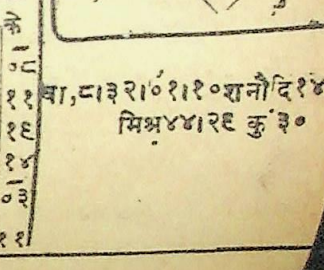 ११
१९
१४
०३
११
वा,८।३२।०१।१०शनौदि१४
मिश्र४४।२९ कु ३०